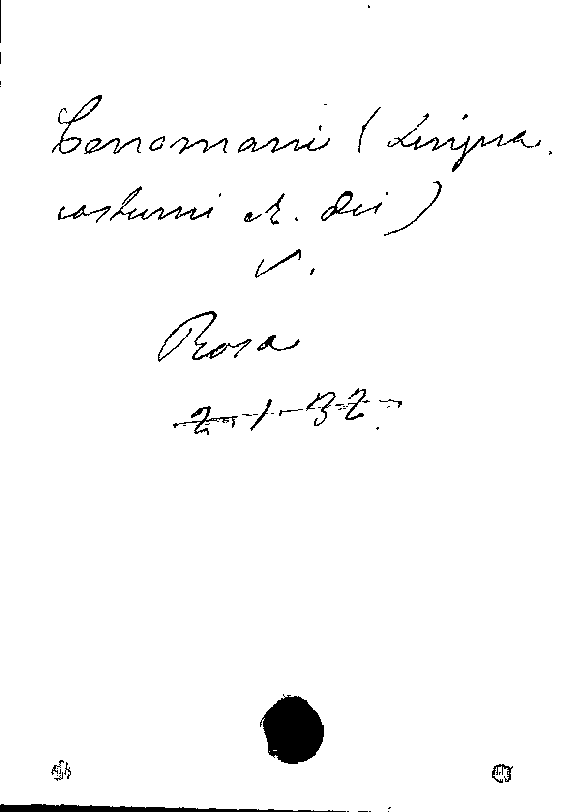 Cenomani (Lingua.
costumi e. dei)
V.
Rosa
2.1.32.